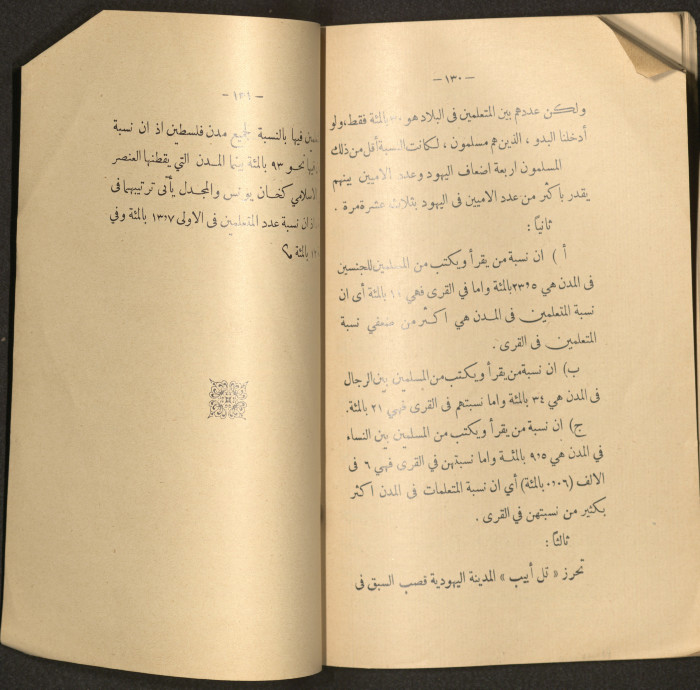 — ١٣٠ —
ولكن عددهم بين المتعلمين فى البلاد هو بالمئة فقط، ولو
أدخلنا البدو ، الذين هم مسلمون ، لكانت النسبة أقل من ذلك
المسلمون اربعة اضعاف اليهود وعدد الاميين بينهم
يقدر باكثر من عدد الاميين فى اليهود بثلاث عشرة مرة .
ثانياً :
أ ) ان نسبة من يقرأ ويكتب من المسلمين للجنسين
فى المدن هي ٢٣٫٥ بالمئة واما في القرى فهي ١٠ بالمئة أى ان
نسبة المتعلمين فى المدن هي اكثر من ضعفي نسبة
المتعلمين فى القرى .
ب) ان نسبة من يقرأ ويكتب من المسلمين بين الرجال
فى المدن هي ٣٤ بالمئة واما نسبتهم فى القرى فهي ٢١ بالمئة.
ج) ان نسبة من يقرأ ويكتب من المسلمين بين النساء
في المدن هي ٩٫٥ بالمئة واما نسبتهن في القرى فهي ٦ فى
الالف (٠٫٠٦ بالمئة) أي ان نسبة المتعلمات فى المدن اكثر
بكثير من نسبتهن في القرى .
ثالثاً :
تحرز « تل أبيب » المدينة اليهودية قصب السبق فى
— ١٣١ —
فيها بالنسبة لجميع مدن فلسطين اذ ان نسبة
نحو ٩٣ بالمئة بينما المدن التي يقطنها العنصر
الاسلامي كخان يونس والمجدل يأتى ترتيبهما فى
اذ ان نسبة عدد المتعلمين فى الاولى ١٣٫٧ بالمئة وفي
بالمئة